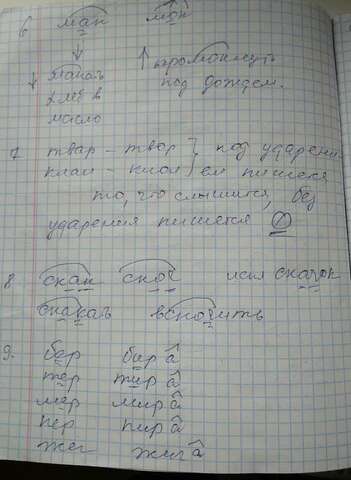 6 мак мок
↓ ↑ вымокнуть
макать под дождем.
хлеб в
масло
7 твар – твор } под ударени
клан – клон } ем пишется
то, что слышится, без
ударения пишется О
8 скак скоч искл скачок
скакать вскочить
9. бер бир а
тер тир а
мер мир а
пер пир а
жег жиг а